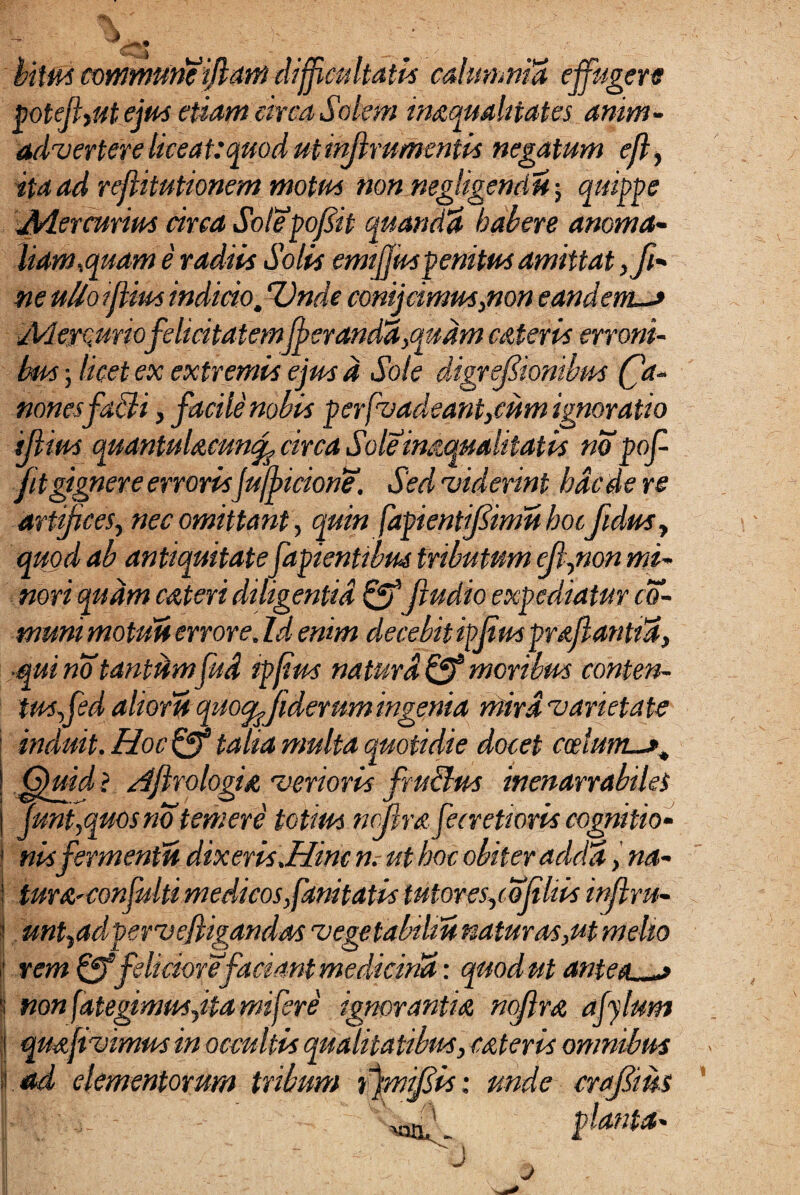 bitus commune iſtam difficultatis calumniā effugere
poteſt, ut ejus etiam circa Solem inæqualitates anim-
advertere liceat: quod ut inſtrumentis negatum eſt,
ita ad reſtitutionem motus non negligendū; quippe
Mercurius circa Solē poßit quandā habere anoma-
liam, quam è radiis Solis emiſſus penitus amittat, ſi-
ne ullo iſtius indicio. Unde conijcimus, non eandem
Mercurio felicitatem ſperandā, quàm cæteris erroni-
bus; licet ex extremis ejus à Sole digreßionibus Ca-
nones facti, facilè nobis perſvadeant, cùm ignoratio
iſtius quantulæcunq; circa Solē inæqualitatis nō poſ-
ſit gignere erroris ſuſpicionē. Sed viderint hâc de re
artifices, nec omittant, quin ſapientißimū hoc ſidus,
quod ab antiquitate ſapientibus tributum eſt, non mi-
nori quàm cæteri diligentiâ & ſtudio expediatur cō-
muni motuū errore. Id enim decebit ipſius præſtantiā,
qui nō tantùm ſuâ ipſius naturâ & moribus conten-
tus, ſed aliorū quoq; ſiderum ingenia mirâ varietate
induit. Hoc & talia multa quotidie docet cœlum.
Quid? Aſtrologiæ verioris fructus inenarrabiles
ſunt, quos nō temerè totius noſtræ ſecretioris cognitio-
nis fermentū dixeris. Hinc n. ut hoc obiter addā, na-
turæ-conſulti medicos, ſanitatis tutores, cōſiliis inſtru-
unt, ad perveſtigandas vegetabiliū naturas, ut melio
rem & feliciorē faciant medicinā: quod ut antea
non ſategimus, ita miſerè ignorantiæ noſtræ aſylum
quæſivimus in occultis qualitatibus, cæteris omnibus
ad elementorum tribum rejmißis: unde craßiùs
planta-